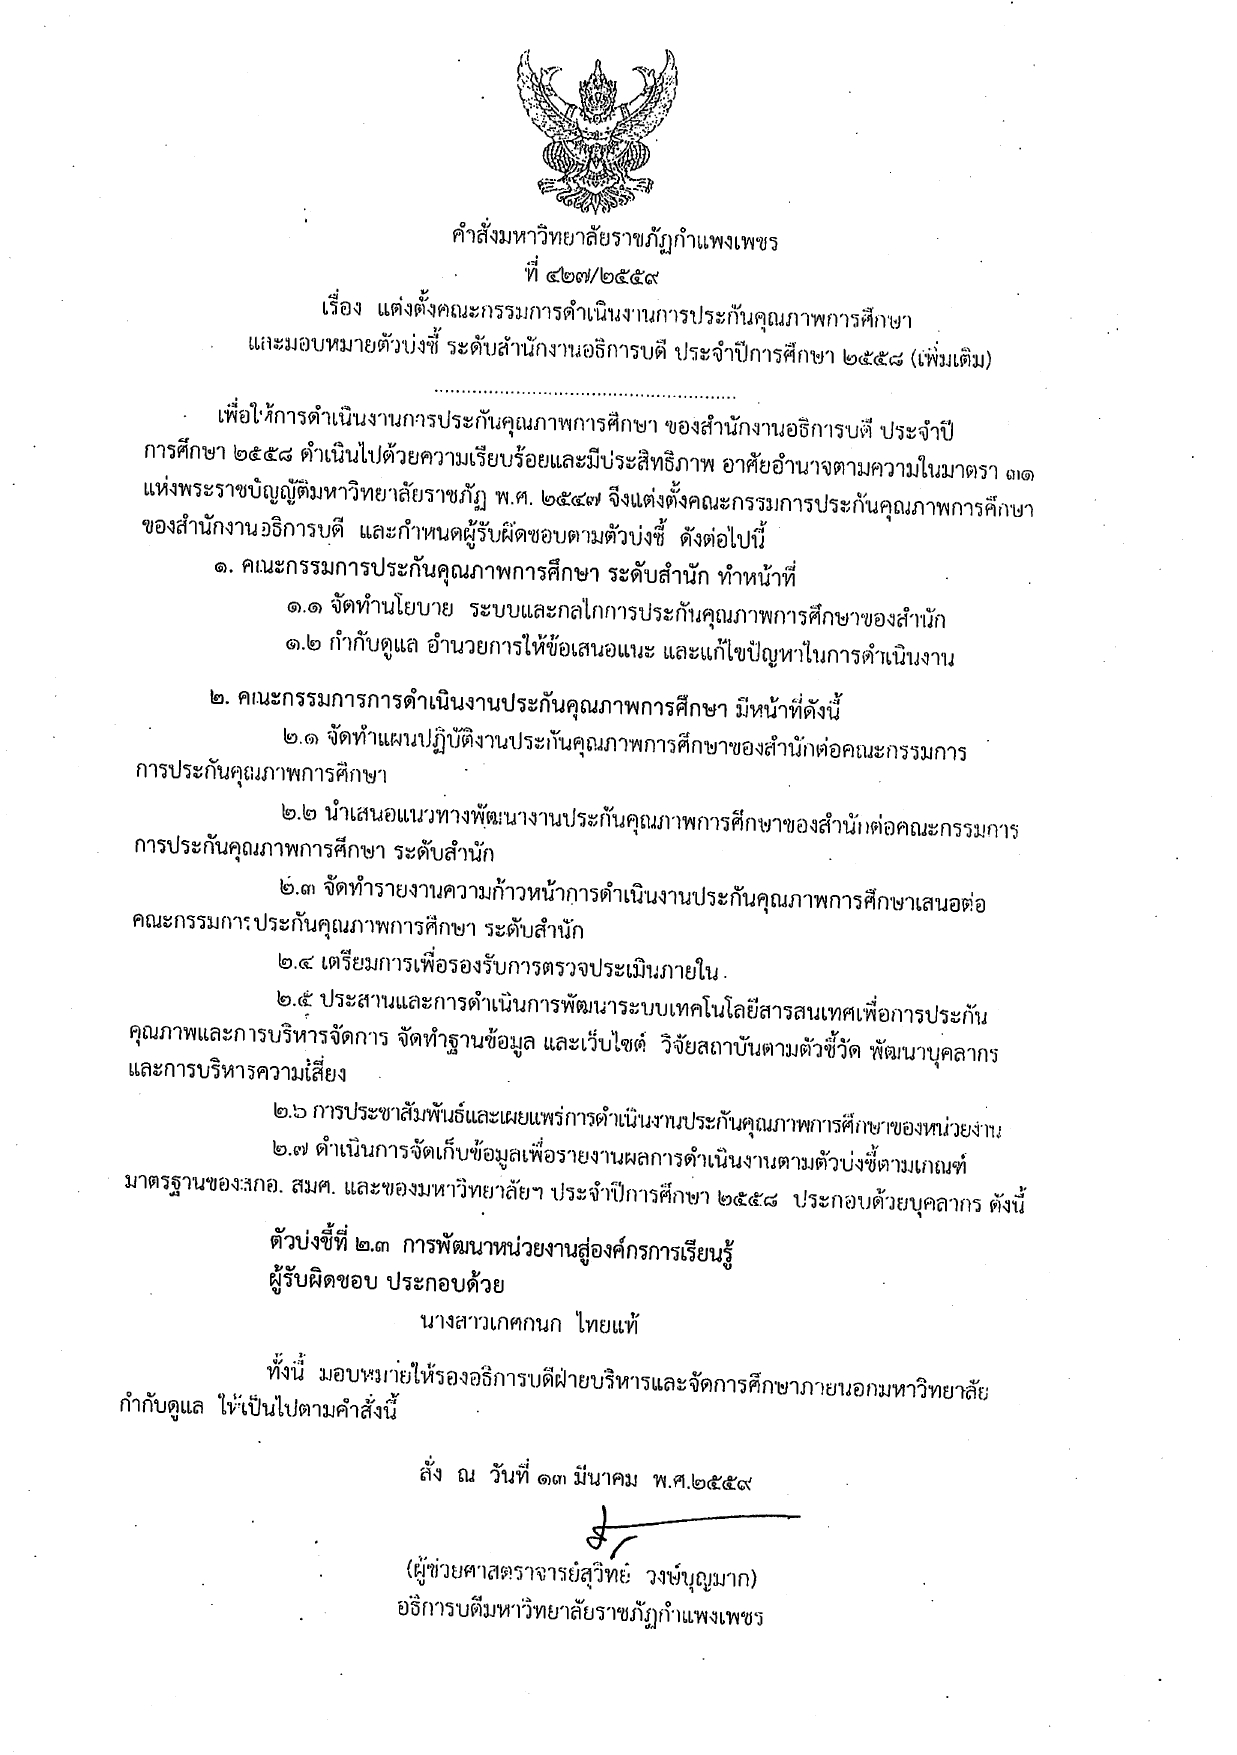 คำสั่งมหาวิทยาลัยราชภัฏกำแพงเพชร
ที่ ๔๒๗/๒๕๕๙
เรื่อง แต่งตั้งคณะกรรมการดำเนินงานการประกันคุณภาพการศึกษา
และมอบหมายตัวบ่งชี้ ระดับสำนักงานอธิการบดี ประจำปีการศึกษา ๒๕๕๘ (เพิ่มเติม)
..........................................................
เพื่อให้การดำเนินงานการประกันคุณภาพการศึกษา ของสำนักงานอธิการบดี ประจำปี
การศึกษา ๒๕๕๘ ดำเนินไปด้วยความเรียบร้อยและมีประสิทธิภาพ อาศัยอำนาจตามความในมาตรา ๓๑
แห่งพระราชบัญญัติมหาวิทยาลัยราชภัฏ พ.ศ. ๒๕๔๗ จึงแต่งตั้งคณะกรรมการประกันคุณภาพการศึกษา
ของสำนักงานอธิการบดี และกำหนดผู้รับผิดชอบตามตัวบ่งชี้ ดังต่อไปนี้
๑. คณะกรรมการประกันคุณภาพการศึกษา ระดับสำนัก ทำหน้าที่
๑.๑ จัดทำนโยบาย ระบบและกลไกการประกันคุณภาพการศึกษาของสำนัก
๑.๒ กำกับดูแล อำนวยการให้ข้อเสนอแนะ และแก้ไขปัญหาในการดำเนินงาน
๒. คณะกรรมการการดำเนินงานประกันคุณภาพการศึกษา มีหน้าที่ดังนี้
๒.๑ จัดทำแผนปฏิบัติงานประกันคุณภาพการศึกษาของสำนักต่อคณะกรรมการ
การประกันคุณภาพการศึกษา
๒.๒ นำเสนอแนวทางพัฒนางานประกันคุณภาพการศึกษาของสำนักต่อคณะกรรมการ
การประกันคุณภาพการศึกษา ระดับสำนัก
๒.๓ จัดทำรายงานความก้าวหน้าการดำเนินงานประกันคุณภาพการศึกษาเสนอต่อ
คณะกรรมการประกันคุณภาพการศึกษา ระดับสำนัก
๒.๔ เตรียมการเพื่อรองรับการตรวจประเมินภายใน
๒.๕ ประสานและการดำเนินการพัฒนาระบบเทคโนโลยีสารสนเทศเพื่อการประกัน
คุณภาพและการบริหารจัดการ จัดทำฐานข้อมูล และเว็บไซต์ วิจัยสถาบันตามตัวชี้วัด พัฒนาบุคลากร
และการบริหารความเสี่ยง
๒.๖ การประชาสัมพันธ์และเผยแพร่การดำเนินงานประกันคุณภาพการศึกษาของหน่วยงาน
๒.๗ ดำเนินการจัดเก็บข้อมูลเพื่อรายงานผลการดำเนินงานตามตัวบ่งชี้ตามเกณฑ์
มาตรฐานของสกอ. สมศ. และของมหาวิทยาลัยฯ ประจำปีการศึกษา ๒๕๕๘ ประกอบด้วยบุคลากร ดังนี้
ตัวบ่งชี้ที่ ๒.๓ การพัฒนาหน่วยงานสู่องค์กรการเรียนรู้
ผู้รับผิดชอบ ประกอบด้วย
นางสาวเกศกนก ไทยแท้
ทั้งนี้ มอบหมายให้รองอธิการบดีฝ่ายบริหารและจัดการศึกษาภายนอกมหาวิทยาลัย
กำกับดูแล ให้เป็นไปตามคำสั่งนี้
สั่ง ณ วันที่ ๑๓ มีนาคม พ.ศ.๒๕๕๙
(ผู้ช่วยศาสตราจารย์สุวิทย์ วงษ์บุญมาก)
อธิการบดีมหาวิทยาลัยราชภัฏกำแพงเพชร